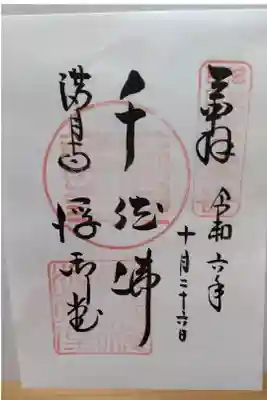 奉拝
令和六年
十月二十六日
千体佛
満月寺
浮御堂